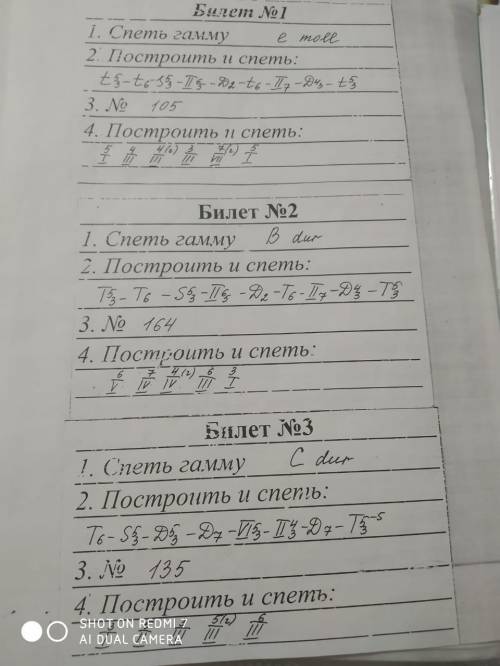 Билет №1
1. Спеть гамму e moll
2. Построить и спеть:
t5/3 - t6 - S5/3 - II6/5 - D2 - t6 - II7 - D4/3 - t5/3
3. № 105
4. Построить и спеть:
5/I 4/III 4(2)/III 3/III 7(2)/VII 5/I
Билет №2
1. Спеть гамму B dur
2. Построить и спеть:
T5/3 - T6 - S5/3 - II6/5 - D2 - T6 - II7 - D4/3 - T5/3
3. № 164
4. Построить и спеть:
6/V 7/IV 4(2)/IV 6/III 3/I
Билет №3
1. Спеть гамму C dur
2. Построить и спеть:
T6 - S5/3 - D5/3 - D7 - VI5/3 - II4/3 - D7 - T5/3
3. № 135
4. Построить и спеть:
5(2)/III 6/III
SHOT ON REDMI 7
AI DUAL CAMERA